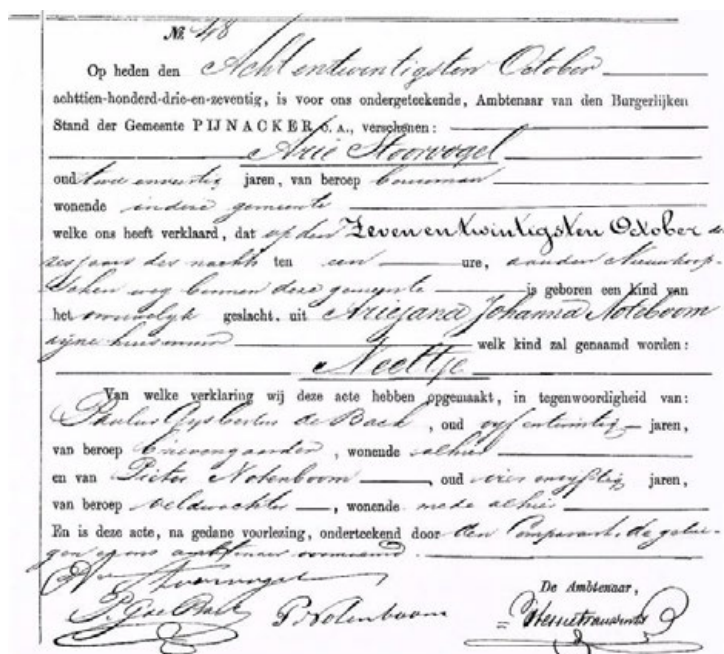 No. 48
Op heden den Acht entwintigsten October
achttien-honderd-drie-en-zeventig, is voor ons ondergeteekende, Ambtenaar van den Burgerlijken
Stand der Gemeente PIJNACKER c. A., verschenen:
Arie Stoorvogel
oud twee en veertig jaren, van beroep bouwman
wonende in deze gemeente
welke ons heeft verklaard, dat op den Zeven en twintigsten October de-
zes jaars des nachts ten een ure, aan den Nieuwkoop-
schen weg binnen deze gemeente is geboren een kind van
het vrouwelijk geslacht, uit Ariejana Johanna Noteboom
zijne huisvrouw welk kind zal genaamd worden:
Neeltje
Van welke verklaring wij deze acte hebben opgemaakt, in tegenwoordigheid van:
Paulus Gysbertus de Back, oud vyf entwintig jaren,
van beroep brievengaarder, wonende alhier
en van Pieter Notenboom, oud vier envyftig jaren,
van beroep veldwachter, wonende mede alhier
En is deze acte, na gedane voorlezing, onderteekend door den Comparant, de getui-
gen en ons ambtenaar voornoemd.
A Stoorvogel
P. G. de Back P. Notenboom
De Ambtenaar,